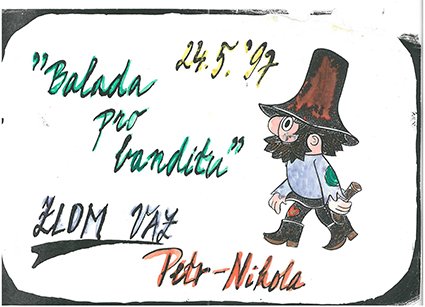 24.5.'97
"Balada
pro
banditu"
ZLOM VAZ
Petr-Nikola